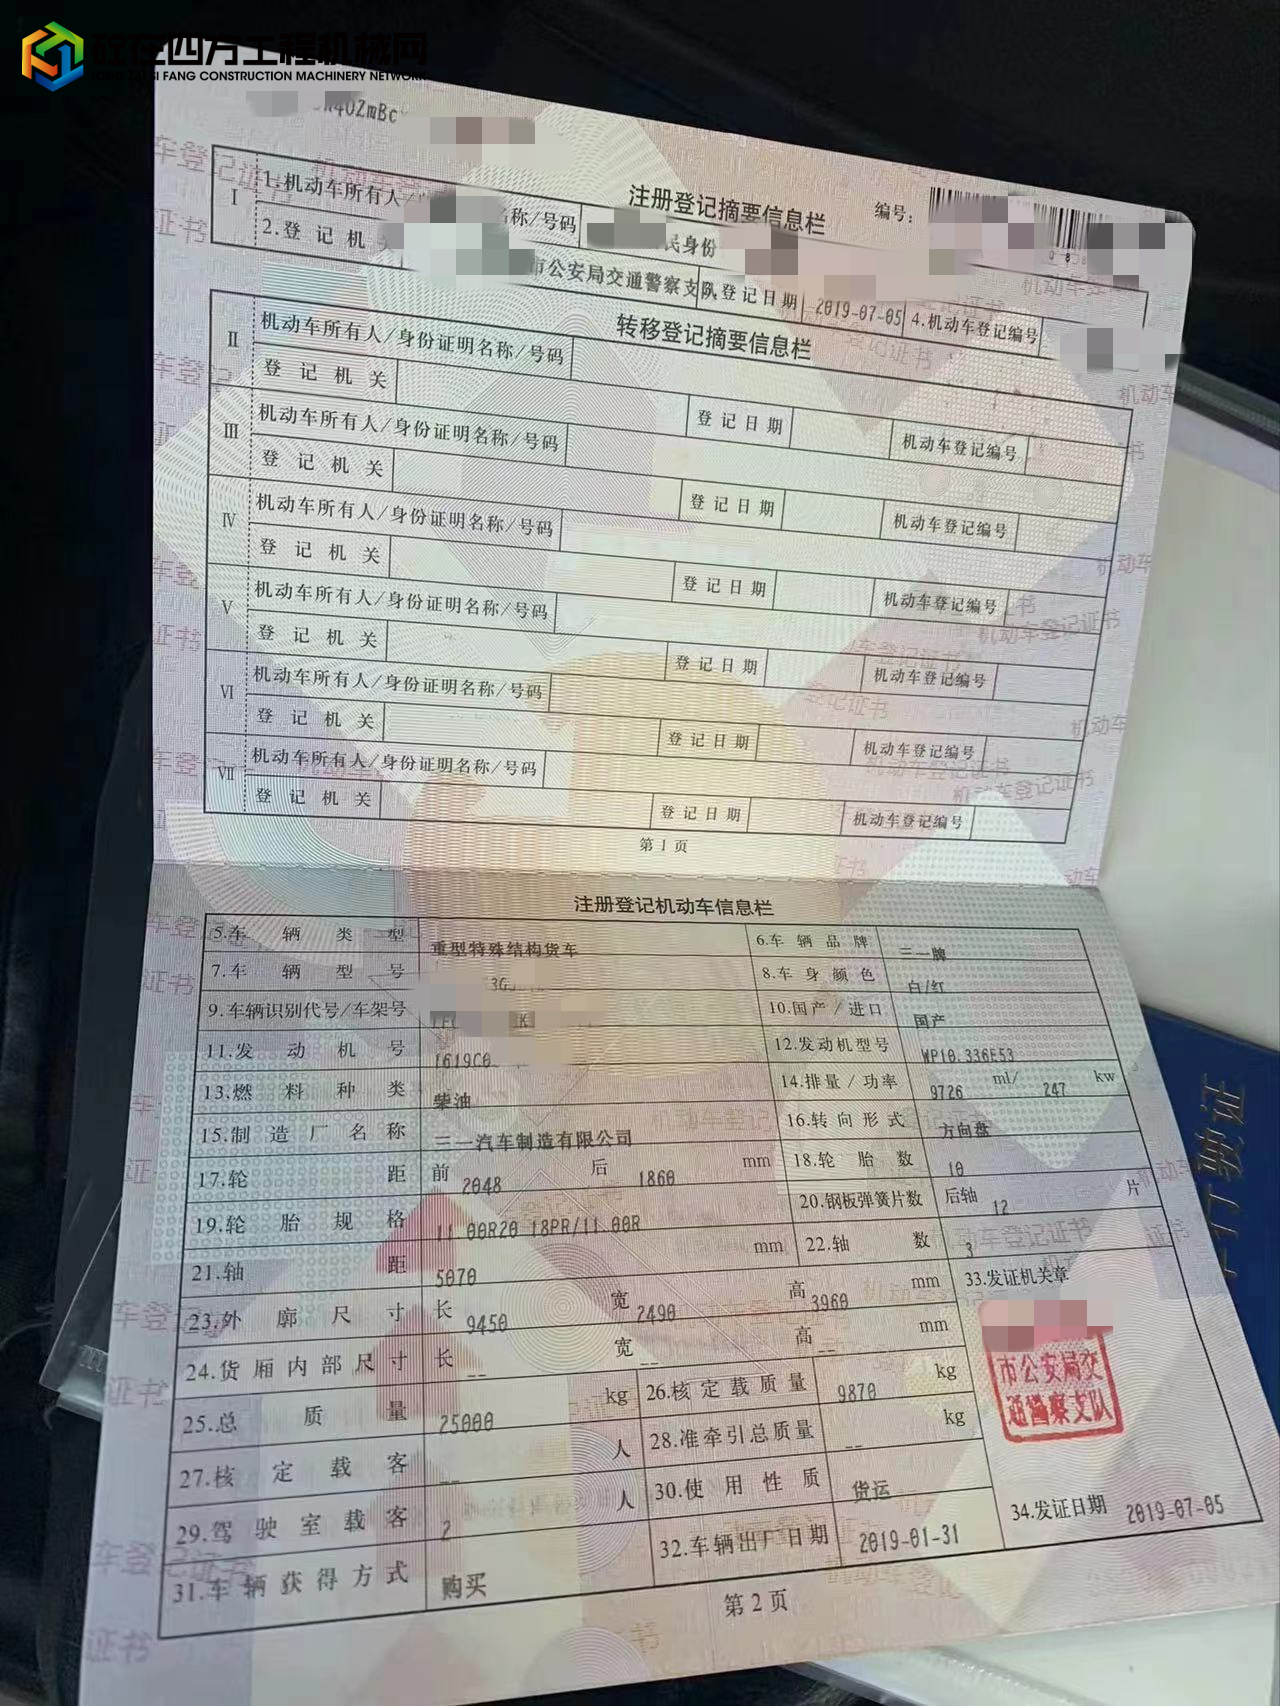 砼在四方工程机械网
TONG ZAI SI FANG CONSTRUCTION MACHINERY NETWORK
注册登记摘要信息栏
编号:
I
1.机动车所有人/
名称/号码
民身份
2.登记机关
市公安局交通警察支队
登记日期
2019-07-05
4.机动车登记编号
转移登记摘要信息栏
II
机动车所有人/身份证明名称/号码
登记机关
登记日期
机动车登记编号
III
机动车所有人/身份证明名称/号码
登记机关
登记日期
机动车登记编号
IV
机动车所有人/身份证明名称/号码
登记机关
登记日期
机动车登记编号
V
机动车所有人/身份证明名称/号码
登记机关
登记日期
机动车登记编号
VI
机动车所有人/身份证明名称/号码
登记机关
登记日期
机动车登记编号
VII
机动车所有人/身份证明名称/号码
登记机关
登记日期
机动车登记编号
第1页
注册登记机动车信息栏
5.车辆类型 重型特殊结构货车 6.车辆品牌 三一牌
7.车辆型号 8.车身颜色 白/红
9.车辆识别代号/车架号 10.国产/进口 国产
11.发动机号 1619C0 12.发动机型号 WP10.336E53
13.燃料种类 柴油 14.排量/功率 9726 ml/ 247 kw
15.制造厂名称 三一汽车制造有限公司 16.转向形式 方向盘
17.轮距 前 2048 后 1860 mm 18.轮胎数 10
19.轮胎规格 11.00R20 18PR/11.00R 20.钢板弹簧片数 后轴 12 片
21.轴距 5070 mm 22.轴数 3
23.外廓尺寸 长 9450 宽 2490 高 3960 mm 33.发证机关章
24.货厢内部尺寸 长 -- 宽 -- 高 -- mm
25.总质量 25000 kg 26.核定载质量 9870 kg
27.核定载客 -- 人 28.准牵引总质量 -- kg
29.驾驶室载客 2 人 30.使用性质 货运
31.车辆获得方式 购买 32.车辆出厂日期 2019-01-31
市公安局交
通警察支队
34.发证日期 2019-07-05
第2页